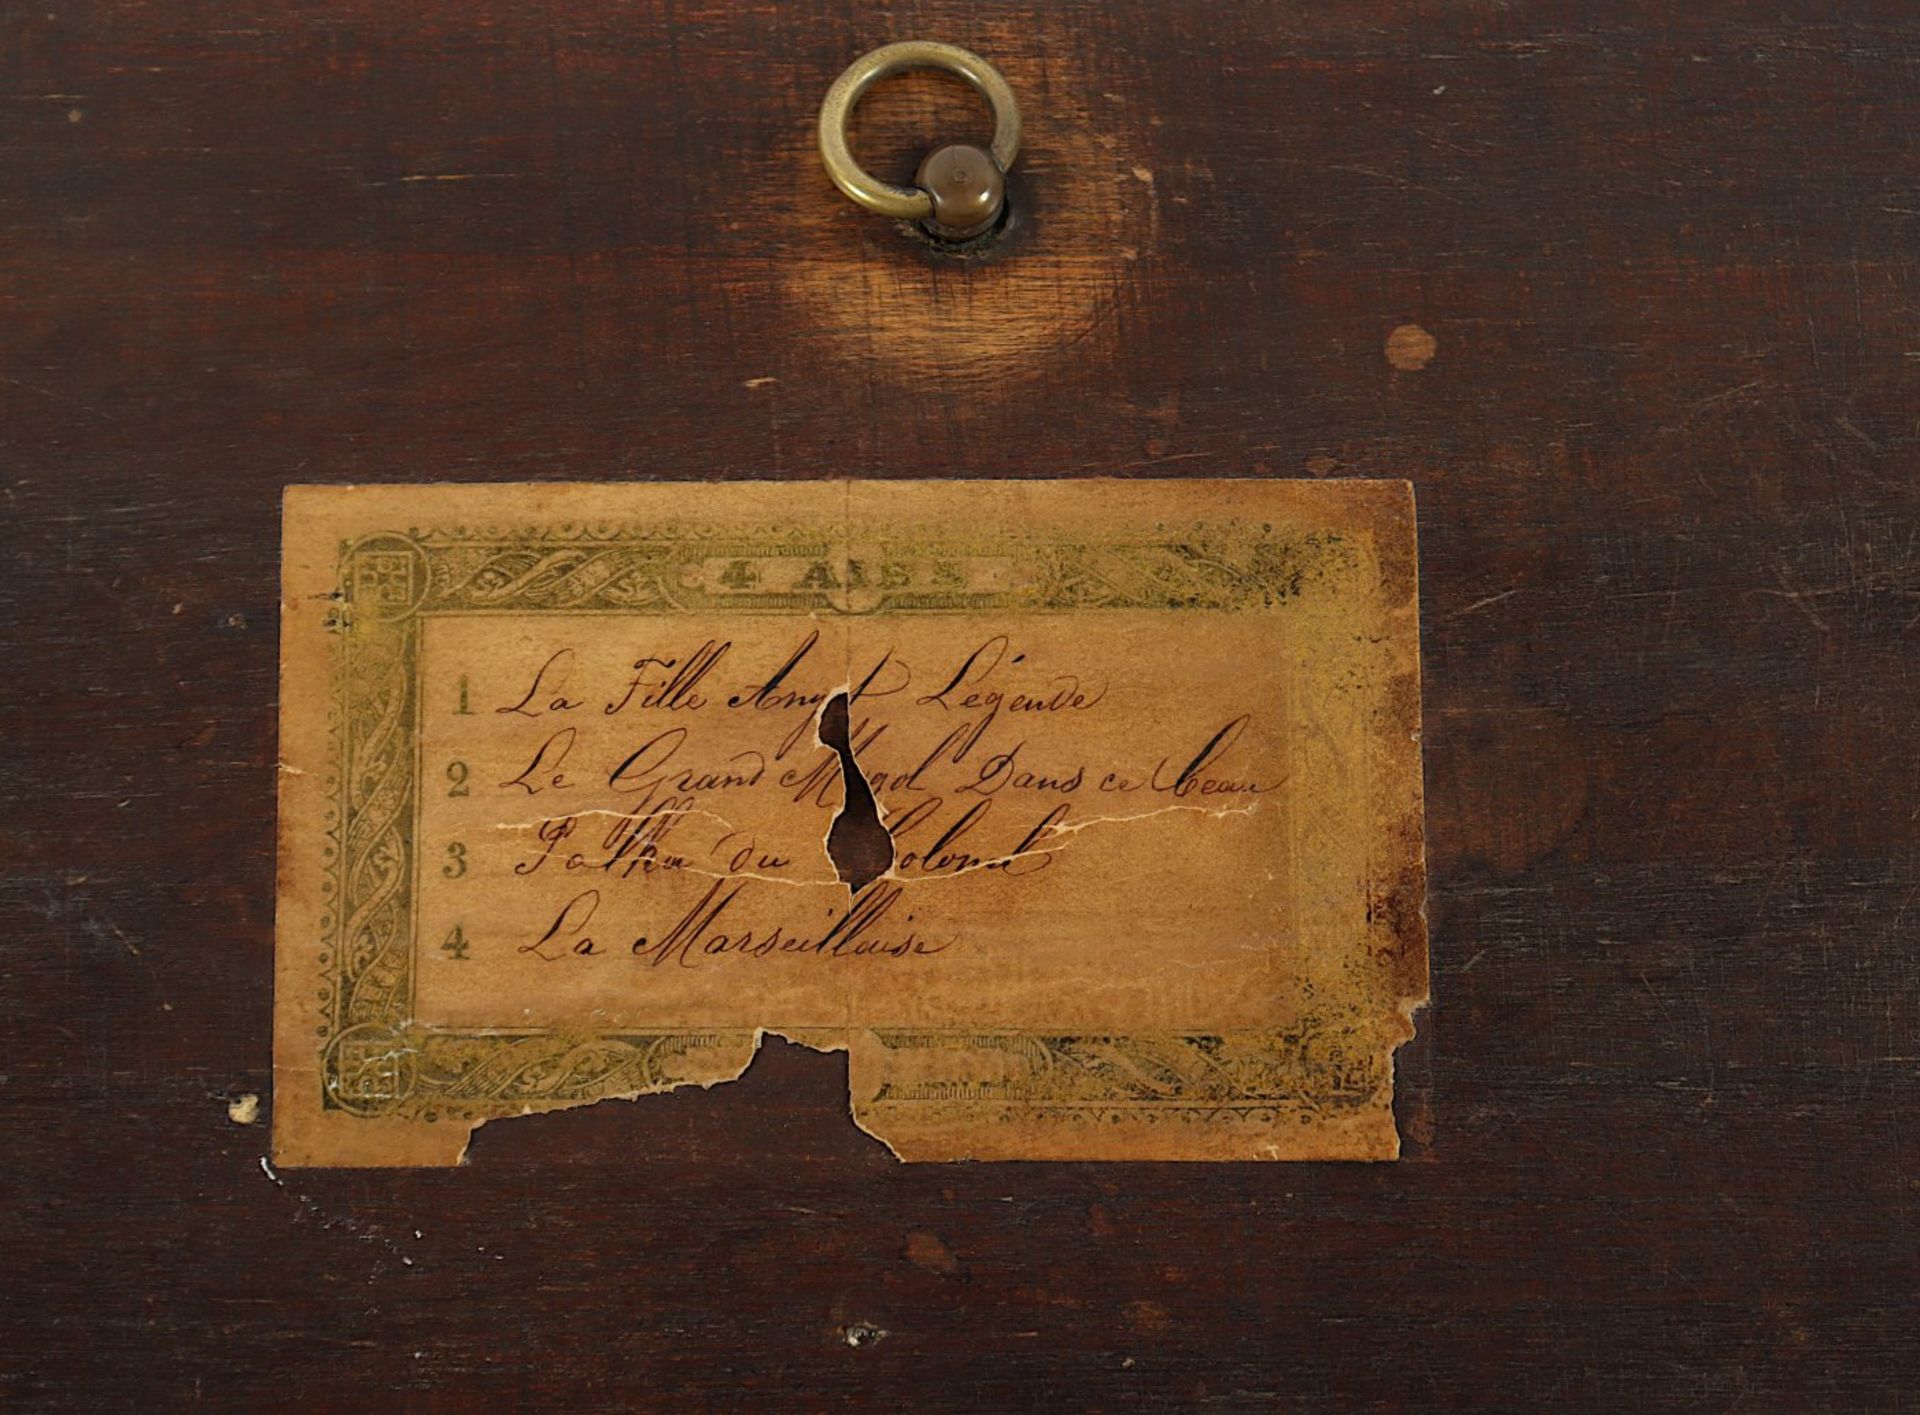 4 AIRS
1 La Fille Angot Légende
2 Le Grand Mogol Dans ce beau
3 Polka du Colonel
4 La Marseillaise